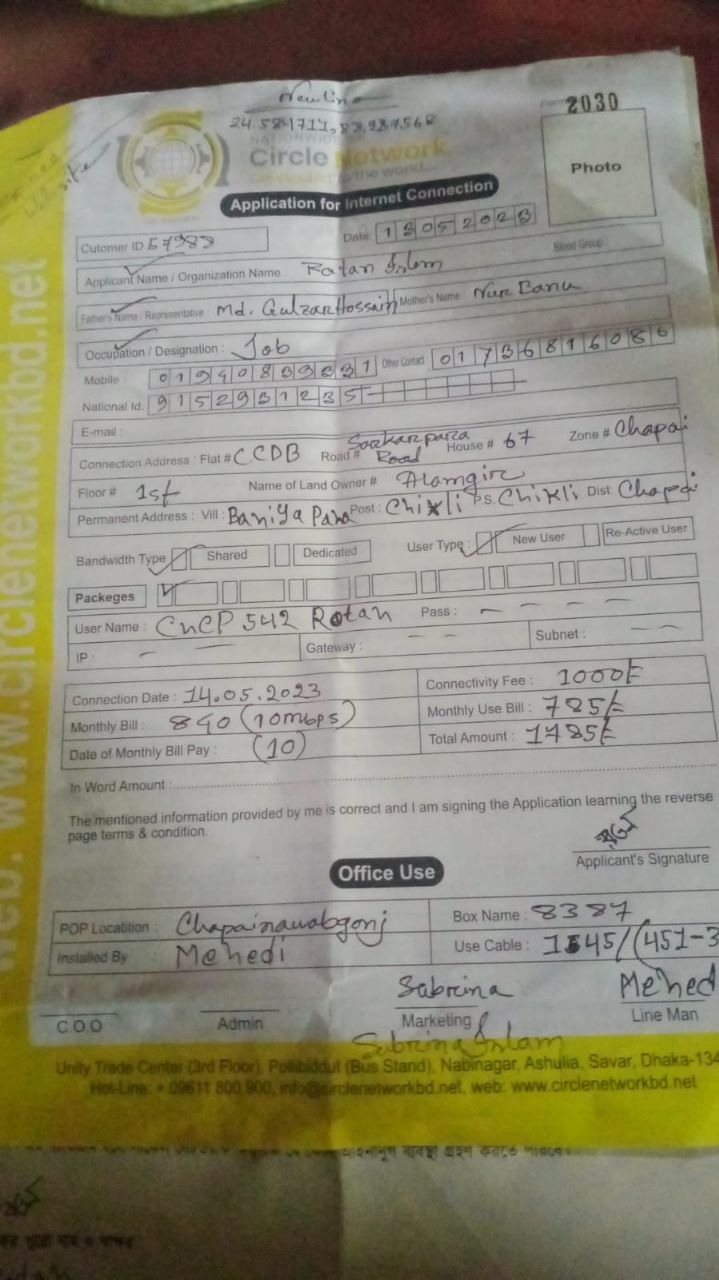 New Line
Form 2030
24.584711, 88.287568
NATIONWIDE
Circle Network
to the world...
Photo
Application for Internet Connection
Date 13052023
Cutomer ID 57988
Blood Group
Applicant Name / Organization Name : Ratan Islam
Father's Name / Representative : Md. Gulzar Hossain Mother's Name : Nur Banu
Occupation / Designation : Job
Mobile : Other Contact 01736816086
National Id. 9152931235
E-mail :
Connection Address : Flat # CCDB Road # Sarkarpara Road House # 67 Zone # Chapai
Floor # 1st Name of Land Owner # Alamgir
Permanent Address : Vill : Baniya Para Post : Chixli P.S. Chixli Dist Chapai
Bandwidth Type Shared Dedicated User Type : New User Re-Active User
Packeges
User Name : CNCP 542 Rotan Pass : - - - -
IP : - - Gateway : - - Subnet : - -
Connection Date : 14.05.2023 Connectivity Fee : 1000/=
Monthly Bill : 840 (10mbps) Monthly Use Bill : 785/=
Date of Monthly Bill Pay : (10) Total Amount : 1785/=
In Word Amount :
The mentioned information provided by me is correct and I am signing the Application learning the reverse
page terms & condition.
Applicant's Signature
Office Use
POP Locatition : Chapainawabgonj Box Name : 8387
Installed By : Mehedi Use Cable : 1545/(451-3
Sabrina Mehed
C.O.O Admin Marketing Line Man
Sabrina Islam
Unity Trade Center (3rd Floor), Pollibiddut (Bus Stand), Nabinagar, Ashulia, Savar, Dhaka-134
Hot-Line: + 09611 800 900, info@circlenetworkbd.net, web: www.circlenetworkbd.net
web: www.circlenetworkbd.net